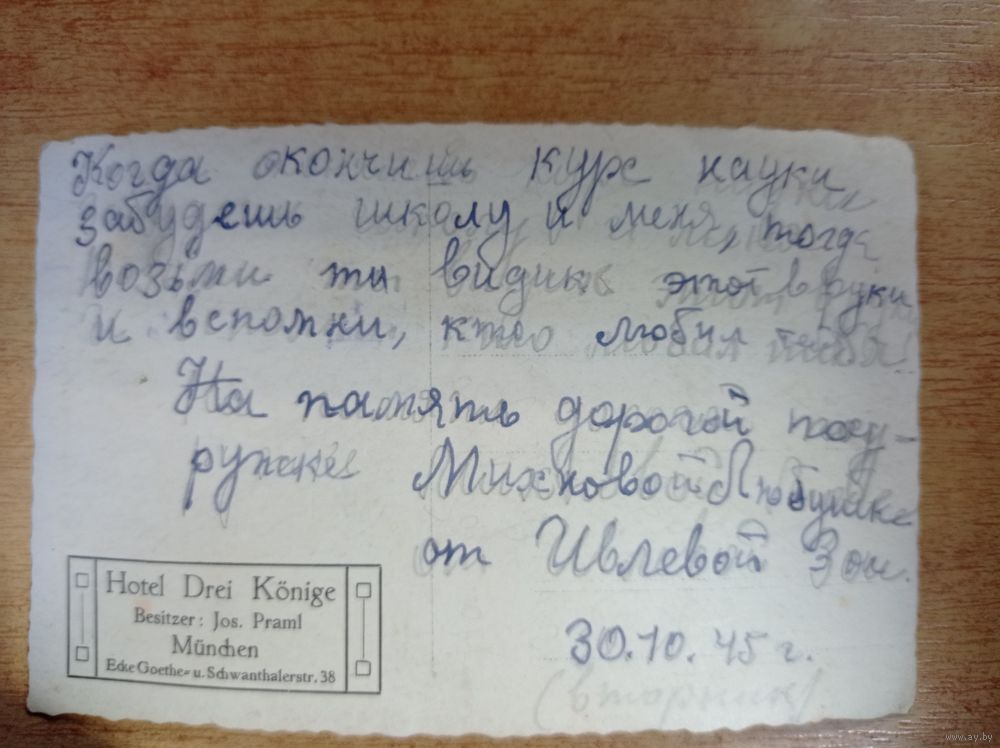 Когда окончишь курс науки,
забудешь школу и меня, тогда
возьми ты видик этот в руки
и вспомни, кто любил тебя!
На память дорогой поду-
ружке Михновой Любушке
от Ивлевой Зои.
30.10.45 г.
(вторник)
Hotel Drei Könige
Besitzer: Jos. Praml
München
Ecke Goethe- u. Schwanthalerstr. 38
www.ay.by